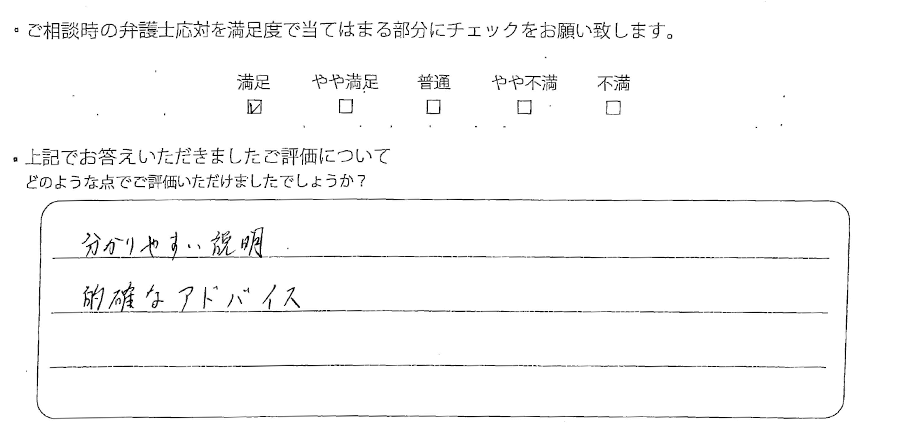 ・ご相談時の弁護士応対を満足度で当てはまる部分にチェックをお願い致します。
満足 やや満足 普通 やや不満 不満
☑ ☐ ☐ ☐ ☐
・上記でお答えいただきましたご評価について
どのような点でご評価いただけましたでしょうか？
分かりやすい説明
的確なアドバイス